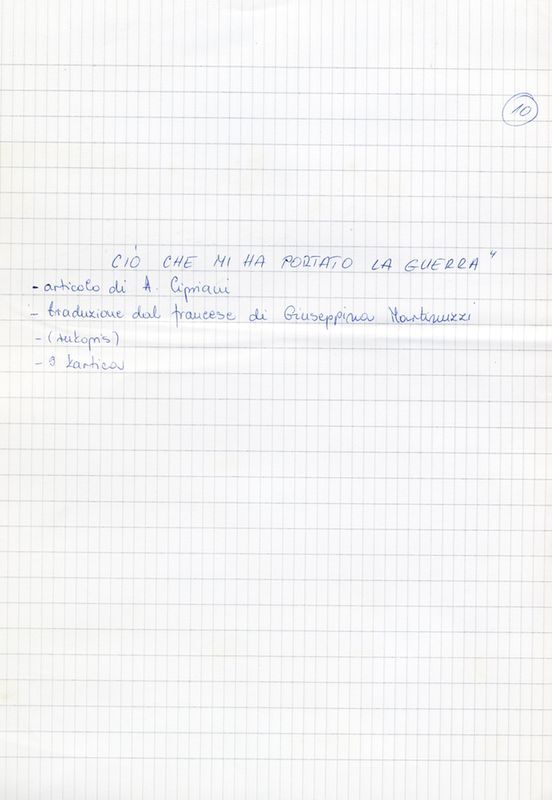 10
CIÓ CHE MI HA PORTATO LA GUERRA"
- articolo di A. Cipriani
- traduzione dal francese di Giuseppina Martinuzzi
- (rukopis)
- 9 kartica